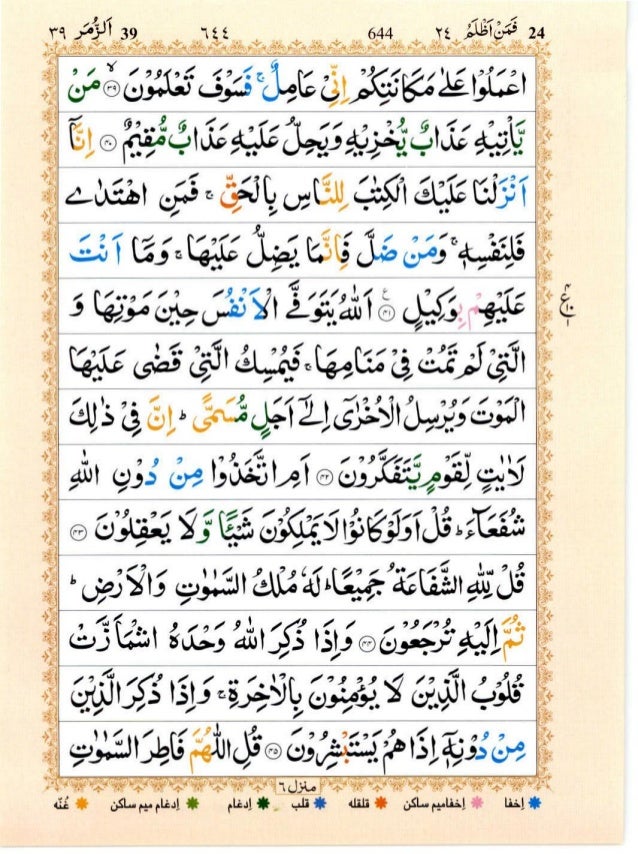 اَلزُّمَر ٣٩ 39 ٦٤٤ 644 فَمَنْ اَظْلَمُ ٢٤ 24
اعْمَلُوْا عَلٰى مَكَانَتِكُمْ اِنِّيْ عَامِلٌ ۚ فَسَوْفَ تَعْلَمُوْنَ ﴿۳۹﴾ۙ مَنْ
يَّاْتِيْهِ عَذَابٌ يُّخْزِيْهِ وَيَحِلُّ عَلَيْهِ عَذَابٌ مُّقِيْمٌ ﴿۴۰﴾ اِنَّاۤ
اَنْزَلْنَا عَلَيْكَ الْكِتٰبَ لِلنَّاسِ بِالْحَقِّ ۚ فَمَنِ اهْتَدٰى
فَلِنَفْسِهٖ ۚ وَمَنْ ضَلَّ فَاِنَّمَا يَضِلُّ عَلَيْهَا ۚ وَمَاۤ اَنْتَ
عَلَيْهِمْ بِوَكِيْلٍ ﴿۴۱﴾ اَللّٰهُ يَتَوَفَّى الْاَنْفُسَ حِيْنَ مَوْتِهَا وَ
الَّتِيْ لَمْ تَمُتْ فِيْ مَنَامِهَا ۚ فَيُمْسِكُ الَّتِيْ قَضٰى عَلَيْهَا
الْمَوْتَ وَيُرْسِلُ الْاُخْرٰۤى اِلٰۤى اَجَلٍ مُّسَمًّى ؕ اِنَّ فِيْ ذٰلِكَ
لَاٰيٰتٍ لِّقَوْمٍ يَّتَفَكَّرُوْنَ ﴿۴۲﴾ اَمِ اتَّخَذُوْا مِنْ دُوْنِ اللّٰهِ
شُفَعَآءَ ؕ قُلْ اَوَلَوْ كَانُوْا لَا يَمْلِكُوْنَ شَيْـًٔا وَّلَا يَعْقِلُوْنَ ﴿۴۳﴾
قُلْ لِّلّٰهِ الشَّفَاعَةُ جَمِيْعًا ؕ لَهٗ مُلْكُ السَّمٰوٰتِ وَالْاَرْضِ ؕ
ثُمَّ اِلَيْهِ تُرْجَعُوْنَ ﴿۴۴﴾ وَاِذَا ذُكِرَ اللّٰهُ وَحْدَهُ اشْمَاَزَّتْ
قُلُوْبُ الَّذِيْنَ لَا يُؤْمِنُوْنَ بِالْاٰخِرَةِ ۚ وَاِذَا ذُكِرَ الَّذِيْنَ
مِنْ دُوْنِهٖۤ اِذَا هُمْ يَسْتَبْشِرُوْنَ ﴿۴۵﴾ قُلِ اللّٰهُمَّ فَاطِرَ السَّمٰوٰتِ
منزل ٦
اِخفا اِخفامیم ساکن قلقله قلب اِدغام اِدغام میم ساکن غُنّه